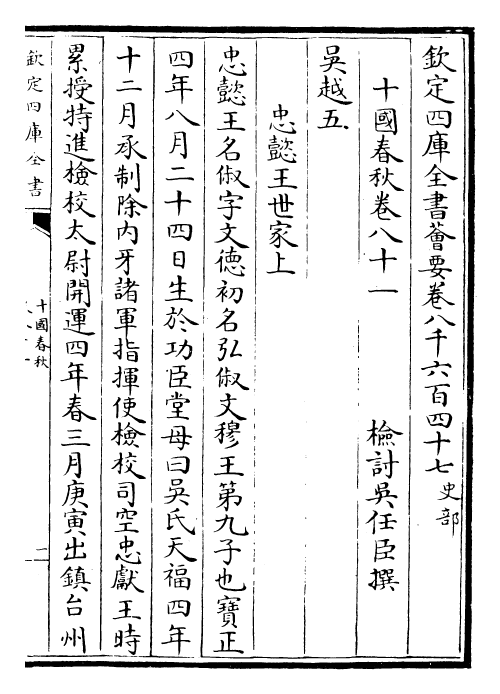 欽定四庫全書薈要卷八千六百四十七 史部
十國春秋卷八十一 檢討吳任臣撰
吳越五
忠懿王世家上
忠懿王名俶字文德初名弘俶文穆王第九子也寶正
四年八月二十四日生於功臣堂母曰吳氏天福四年
十二月承制除內牙諸軍指揮使檢校司空忠獻王時
累授特進檢校太尉開運四年春三月庚寅出鎮台州
欽定四庫全書
十國春秋